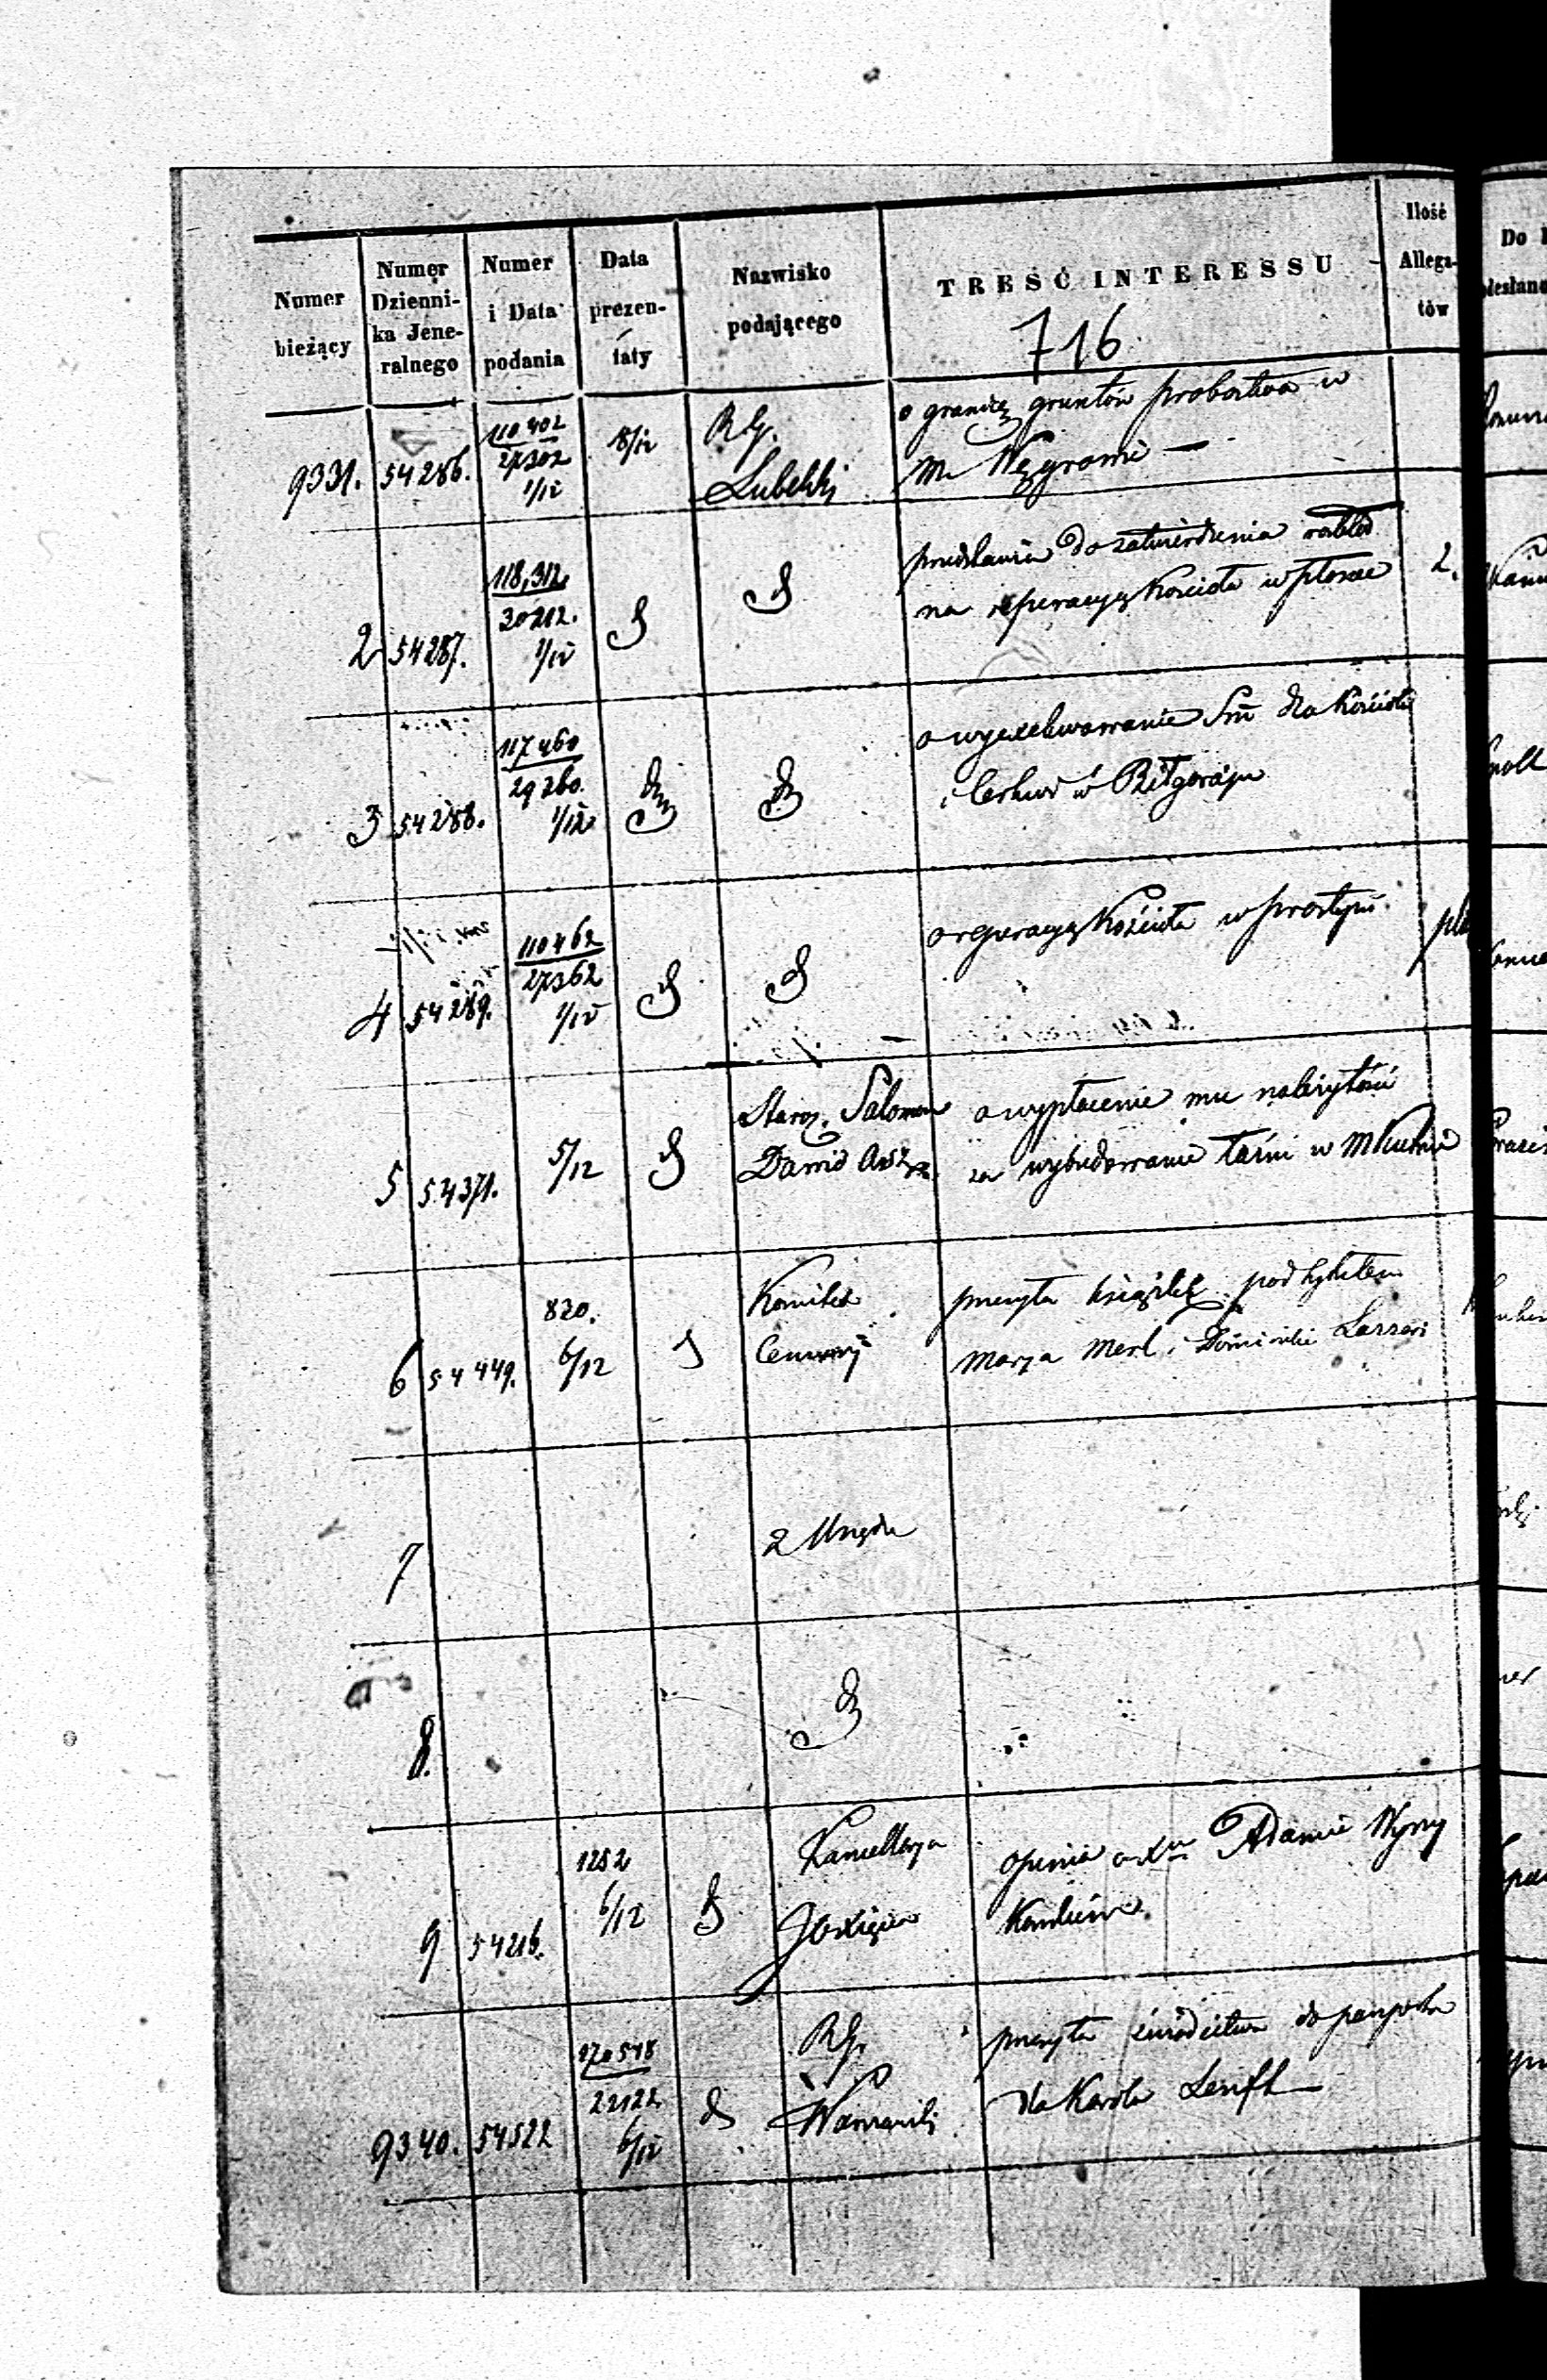 Numer bieżący
Numer Dziennika Jeneralnego
Numer i Data podania
Data prezentaty
Nazwisko podającego
TREŚĆ INTERESSU
Ilość Allegatów
716
9331. 54286. 110402 27302 1/12 8/12 RG. Lubelski
o granicę gruntów probostwa w
m Węgrowie —
2 54287. 118,312. 30212. 1/12 d
przedstawia do zatwierdzenia rozkład
na reperacyą Kościoła w 2.
3 54288. 117460 29260. 1/12 d d
o wyexekwowanie dla Kościoła
i Cerkwi w Biłgoraju
4 54289. 110462 27362 1/12 d d
o reperacyą Kościoła w Prostyni.
5 54371. 5/12 d Staroz. Salomon
Dawid
o wypłacenie mu należytości
za wybudowanie łaźni w
6 54449. 820. 6/12 d Komitet
Cenzury
przesyła książkę pod tytułem
Marya Merl i Dominika Lazzari
7 z Urzędu
8. d
9 54216. 1252 6/12 d Kancellarya
JO Xięcia
opinia o Xu Adamie Wyrzy
kowskim.
9340. 54522 170518 22122 6/12 d RG.
Warszawski
przesyła świadectwo do paszportu
dla Karola